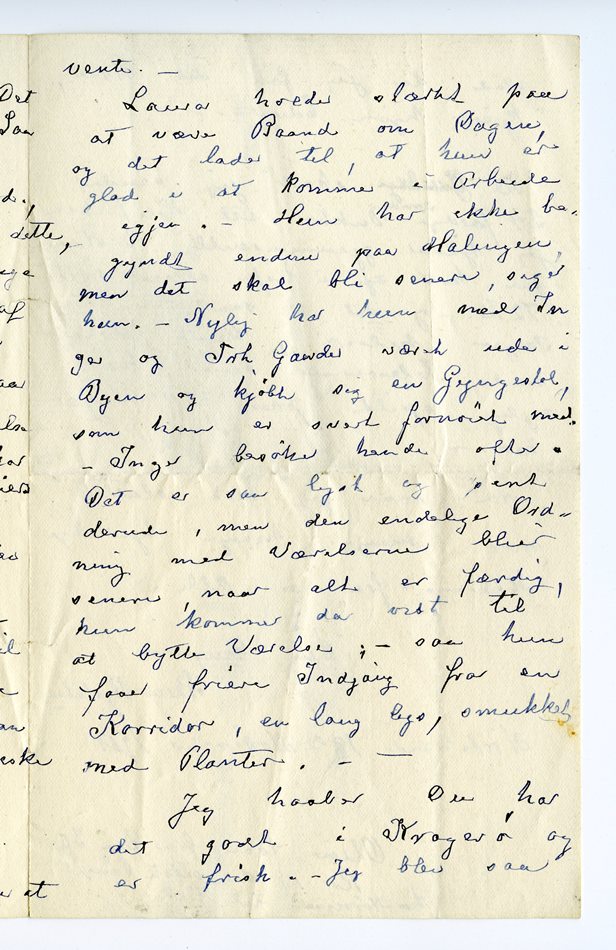 vente. —
Laura holder stærkt paa
at væve Baand om Dagen,
og det lader til, at hun er
glad i at komme i Arbeide
igjen. – Hun har ikke be-
gyndt endnu paa Malingen,
men det skal bli senere, siger
hun. – Nylig har hun med In
ger og Frk Gævder været ude i
Byen og kjøbt sig en Gyngestol,
som hun er svert fornøiet med.
– Inger besøker hende ofte.
Det er saa lyst og pent
derude, men den endelige Ord-
ning med Værelserne blier
senere, naar alt er færdig,
hun kommer da vist til
at bytte Værelse ; – saa hun
faar friere Indgang fra en
Korridor, en lang lys, smukket
med Planter. – —
Jeg haaber Du har
det godt i Kragerø og
er frisk. – Jeg blev saa
Det
Saa
d.,
dette,
ege
af
aar
else
har
il
an
eske
at